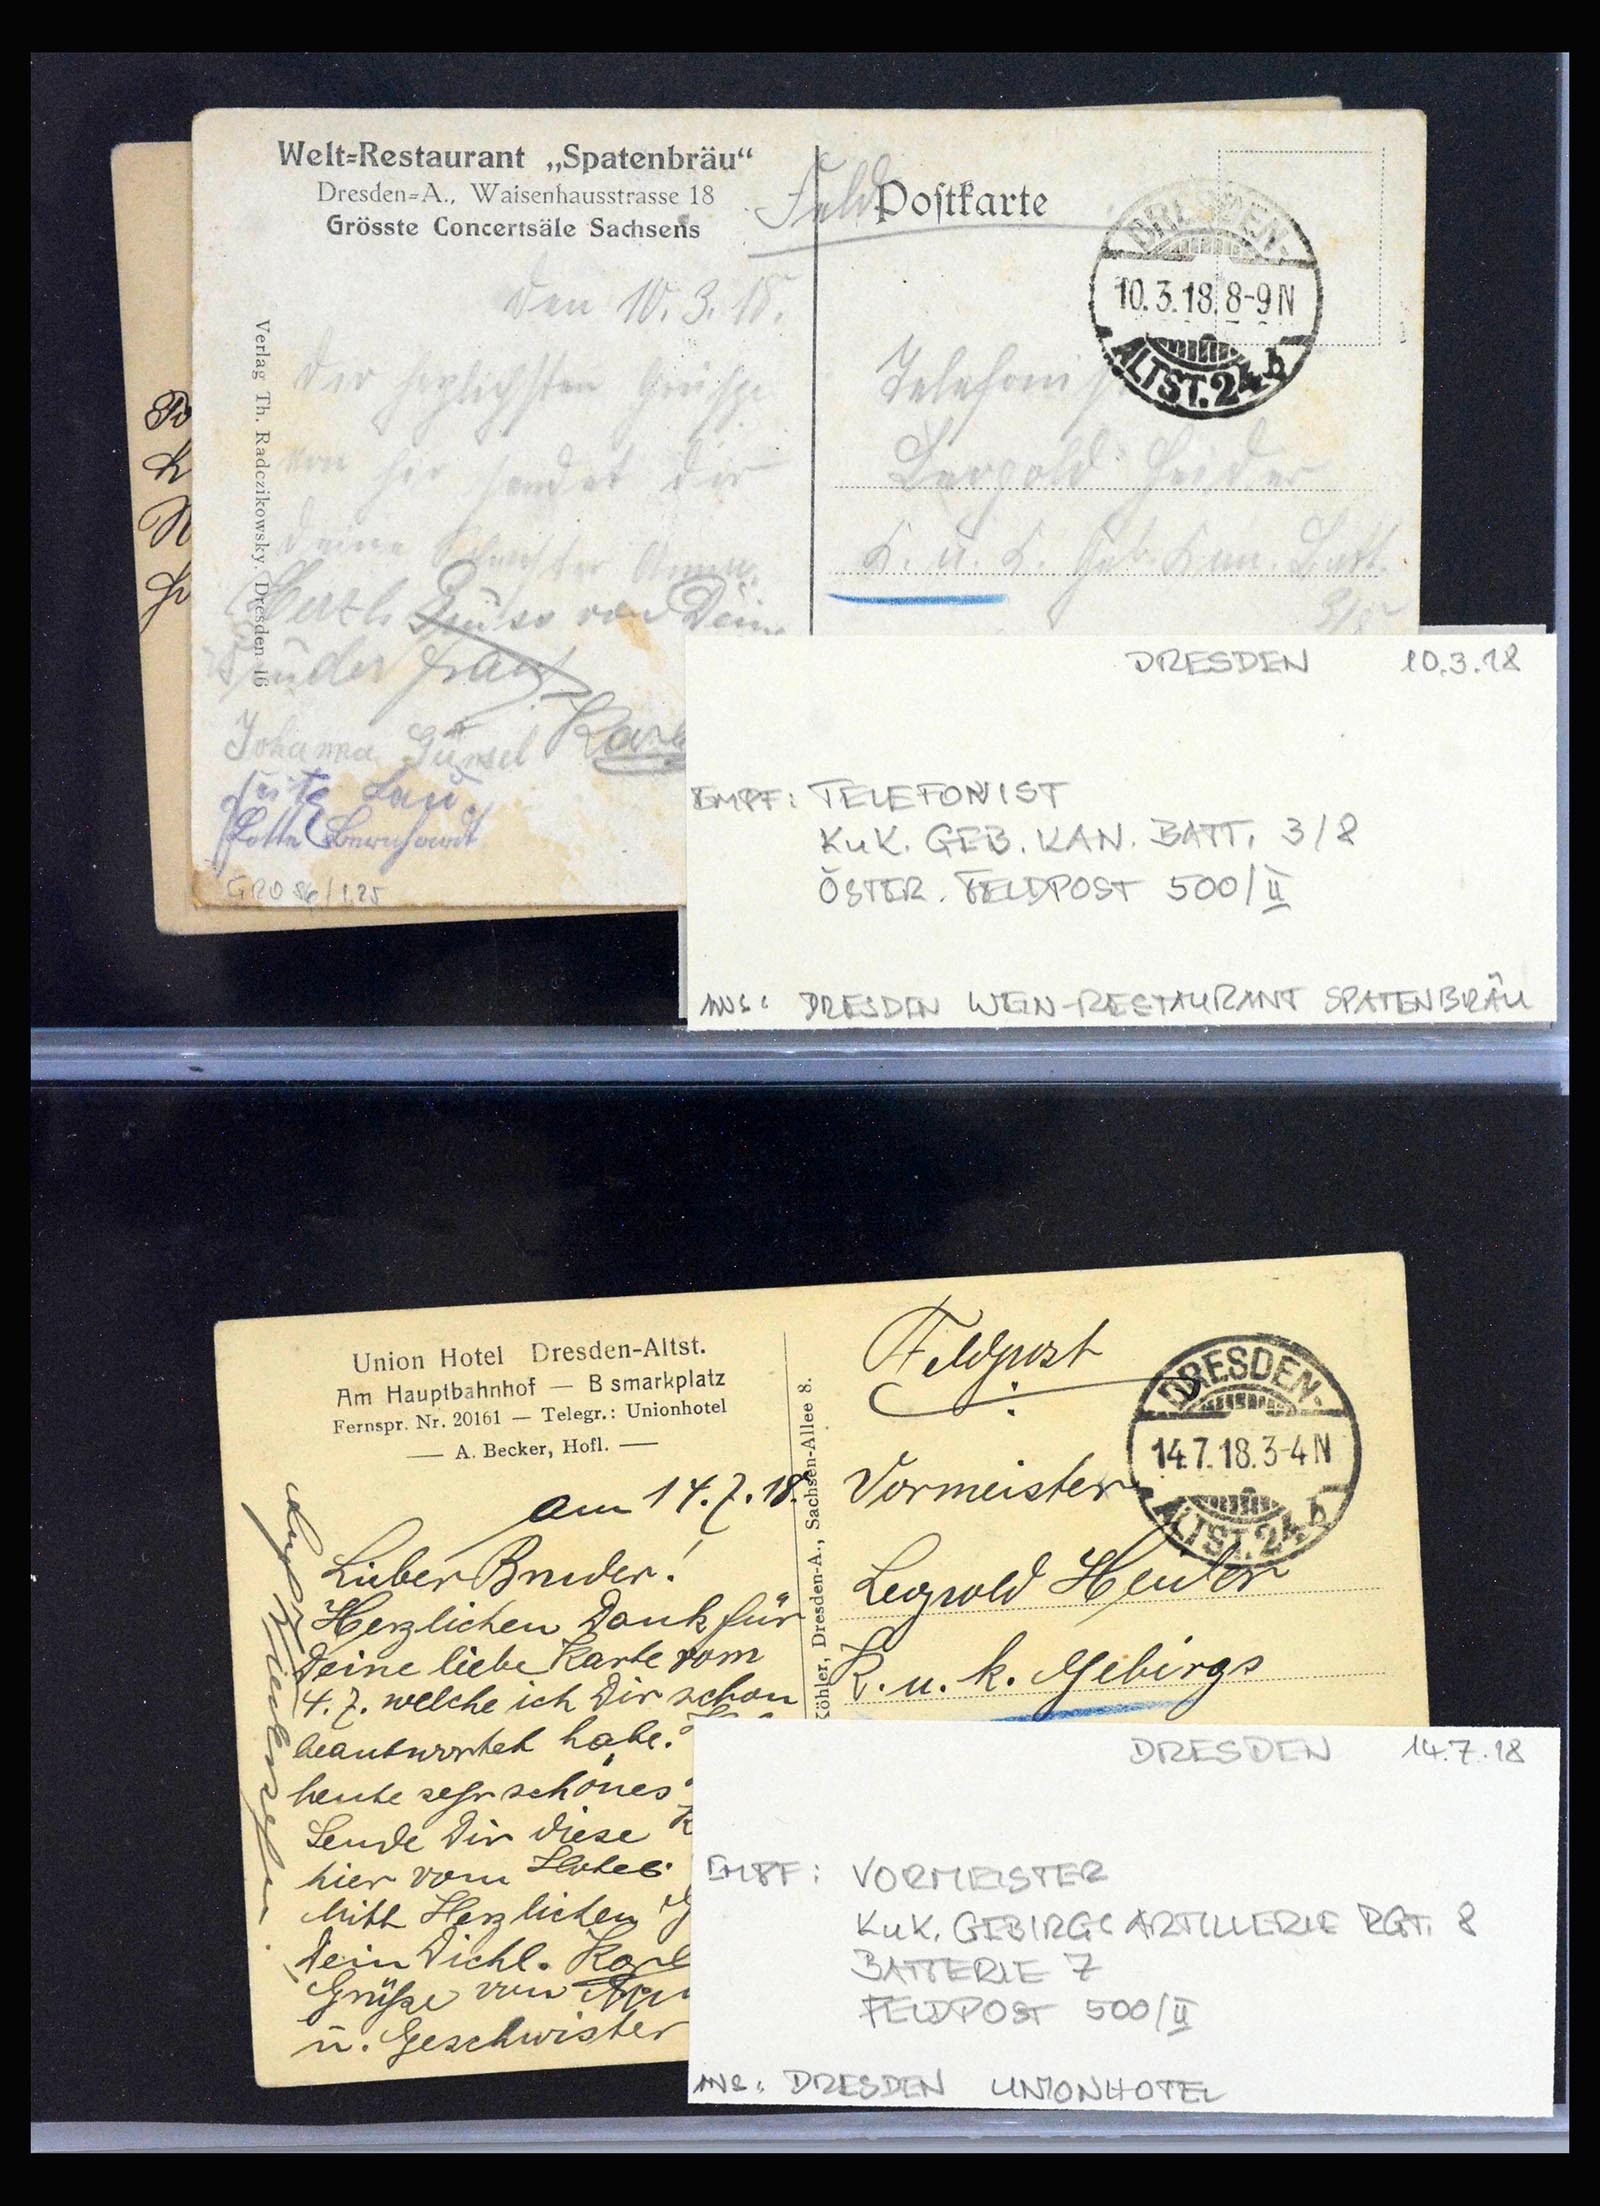 Welt=Restaurant „Spatenbräu“
Dresden=A., Waisenhausstrasse 18
Grösste Concertsäle Sachsens
Feld Postkarte
DRESDEN-
10.3.18. 8-9 N
ALTST. 24 b
Verlag Th. Radczikowsky, Dresden 16
den 10. 3. 18.
von hir sendet dir
deine Schwester
Herzl. Gruss von Dein
Bruder
Johanna Karl
Lotte Bernhardt
GRO 86/1.25
Telefonist
Leopold Heider
K. u. K. Geb. Kan. Batt.
3/8
DRESDEN 10.3.18
EMPF: TELEFONIST
KuK. GEB. KAN. BATT. 3/8
ÖSTER. FELDPOST 500/II
ANS: DRESDEN WEIN-RESTAURANT SPATENBRÄU
Union Hotel Dresden-Altst.
Am Hauptbahnhof — B smarkplatz
Fernspr. Nr. 20161 — Telegr.: Unionhotel
— A. Becker, Hofl. —
Köhler, Dresden-A., Sachsen-Allee 8.
am 14. 7. 18.
Lieber Bruder!
Herzlichen Dank für
Deine liebe Karte vom
4. 7. welche ich Dir schon
beantwortet habe.
heute sehr schönes
Sende Dir diese K
hier vom Hotel
Mitt Herzlichen
Dein Dichl. Karl
Grüße von
u. Geschwister
auf Wiedersehen
Feldpost
DRESDEN-
14.7.18. 3-4 N
ALTST. 24 b
Vormeister
Leopold Heider
K. u. k. Gebirgs
DRESDEN 14.7.18
EMPF: VORMEISTER
KuK. GEBIRGS ARTILLERIE RGT. 8
BATTERIE 7
FELDPOST 500/II
ANS: DRESDEN UNIONHOTEL